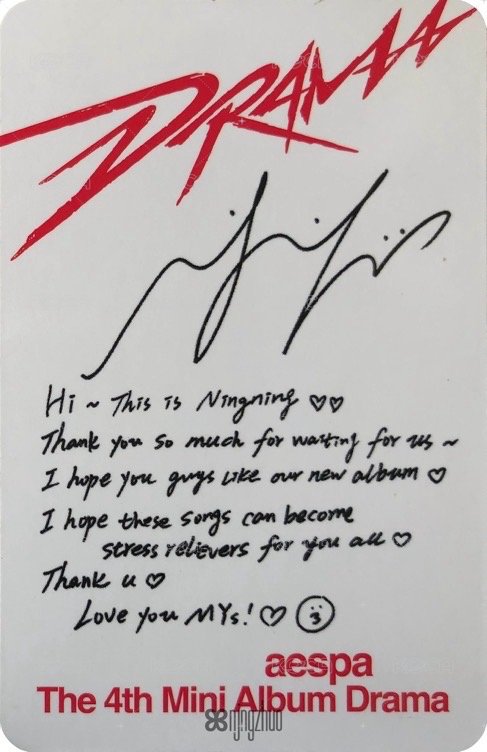 DRAMA
Hi ~ This is Ningning ♡♡
Thank you so much for waiting for us ~
I hope you guys like our new album ♡
I hope these songs can become
stress relievers for you all ♡
Thank u ♡
Love you MYs! ♡
aespa
The 4th Mini Album Drama
mingzhuo